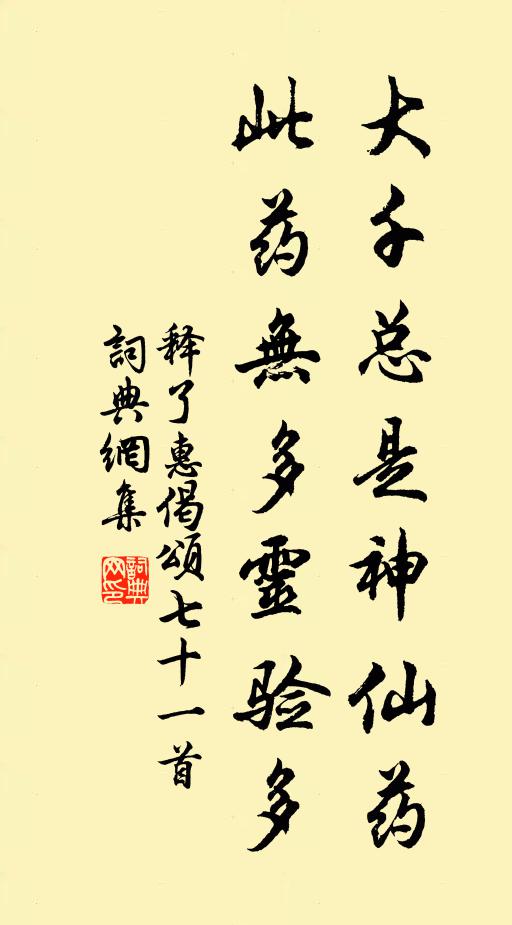 大千总是神仙药
此药無多靈验多
释了惠偈頌七十一首
詞典網集
詞典网印